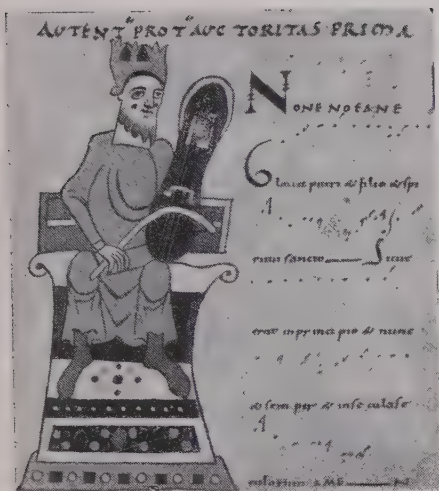 AUTENTUS PROTUS AUCTORITAS PRIMA
NONENOEANE
Gloria patri & filio & spi
ritui sancto Sicut
erat in principio & nunc
& semper & in secula se
culorum AMEN